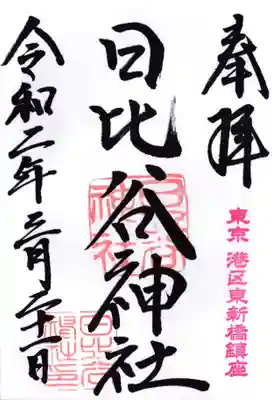 奉拝
東京 港区東新橋鎮座
日比谷神社
令和二年三月二十一日